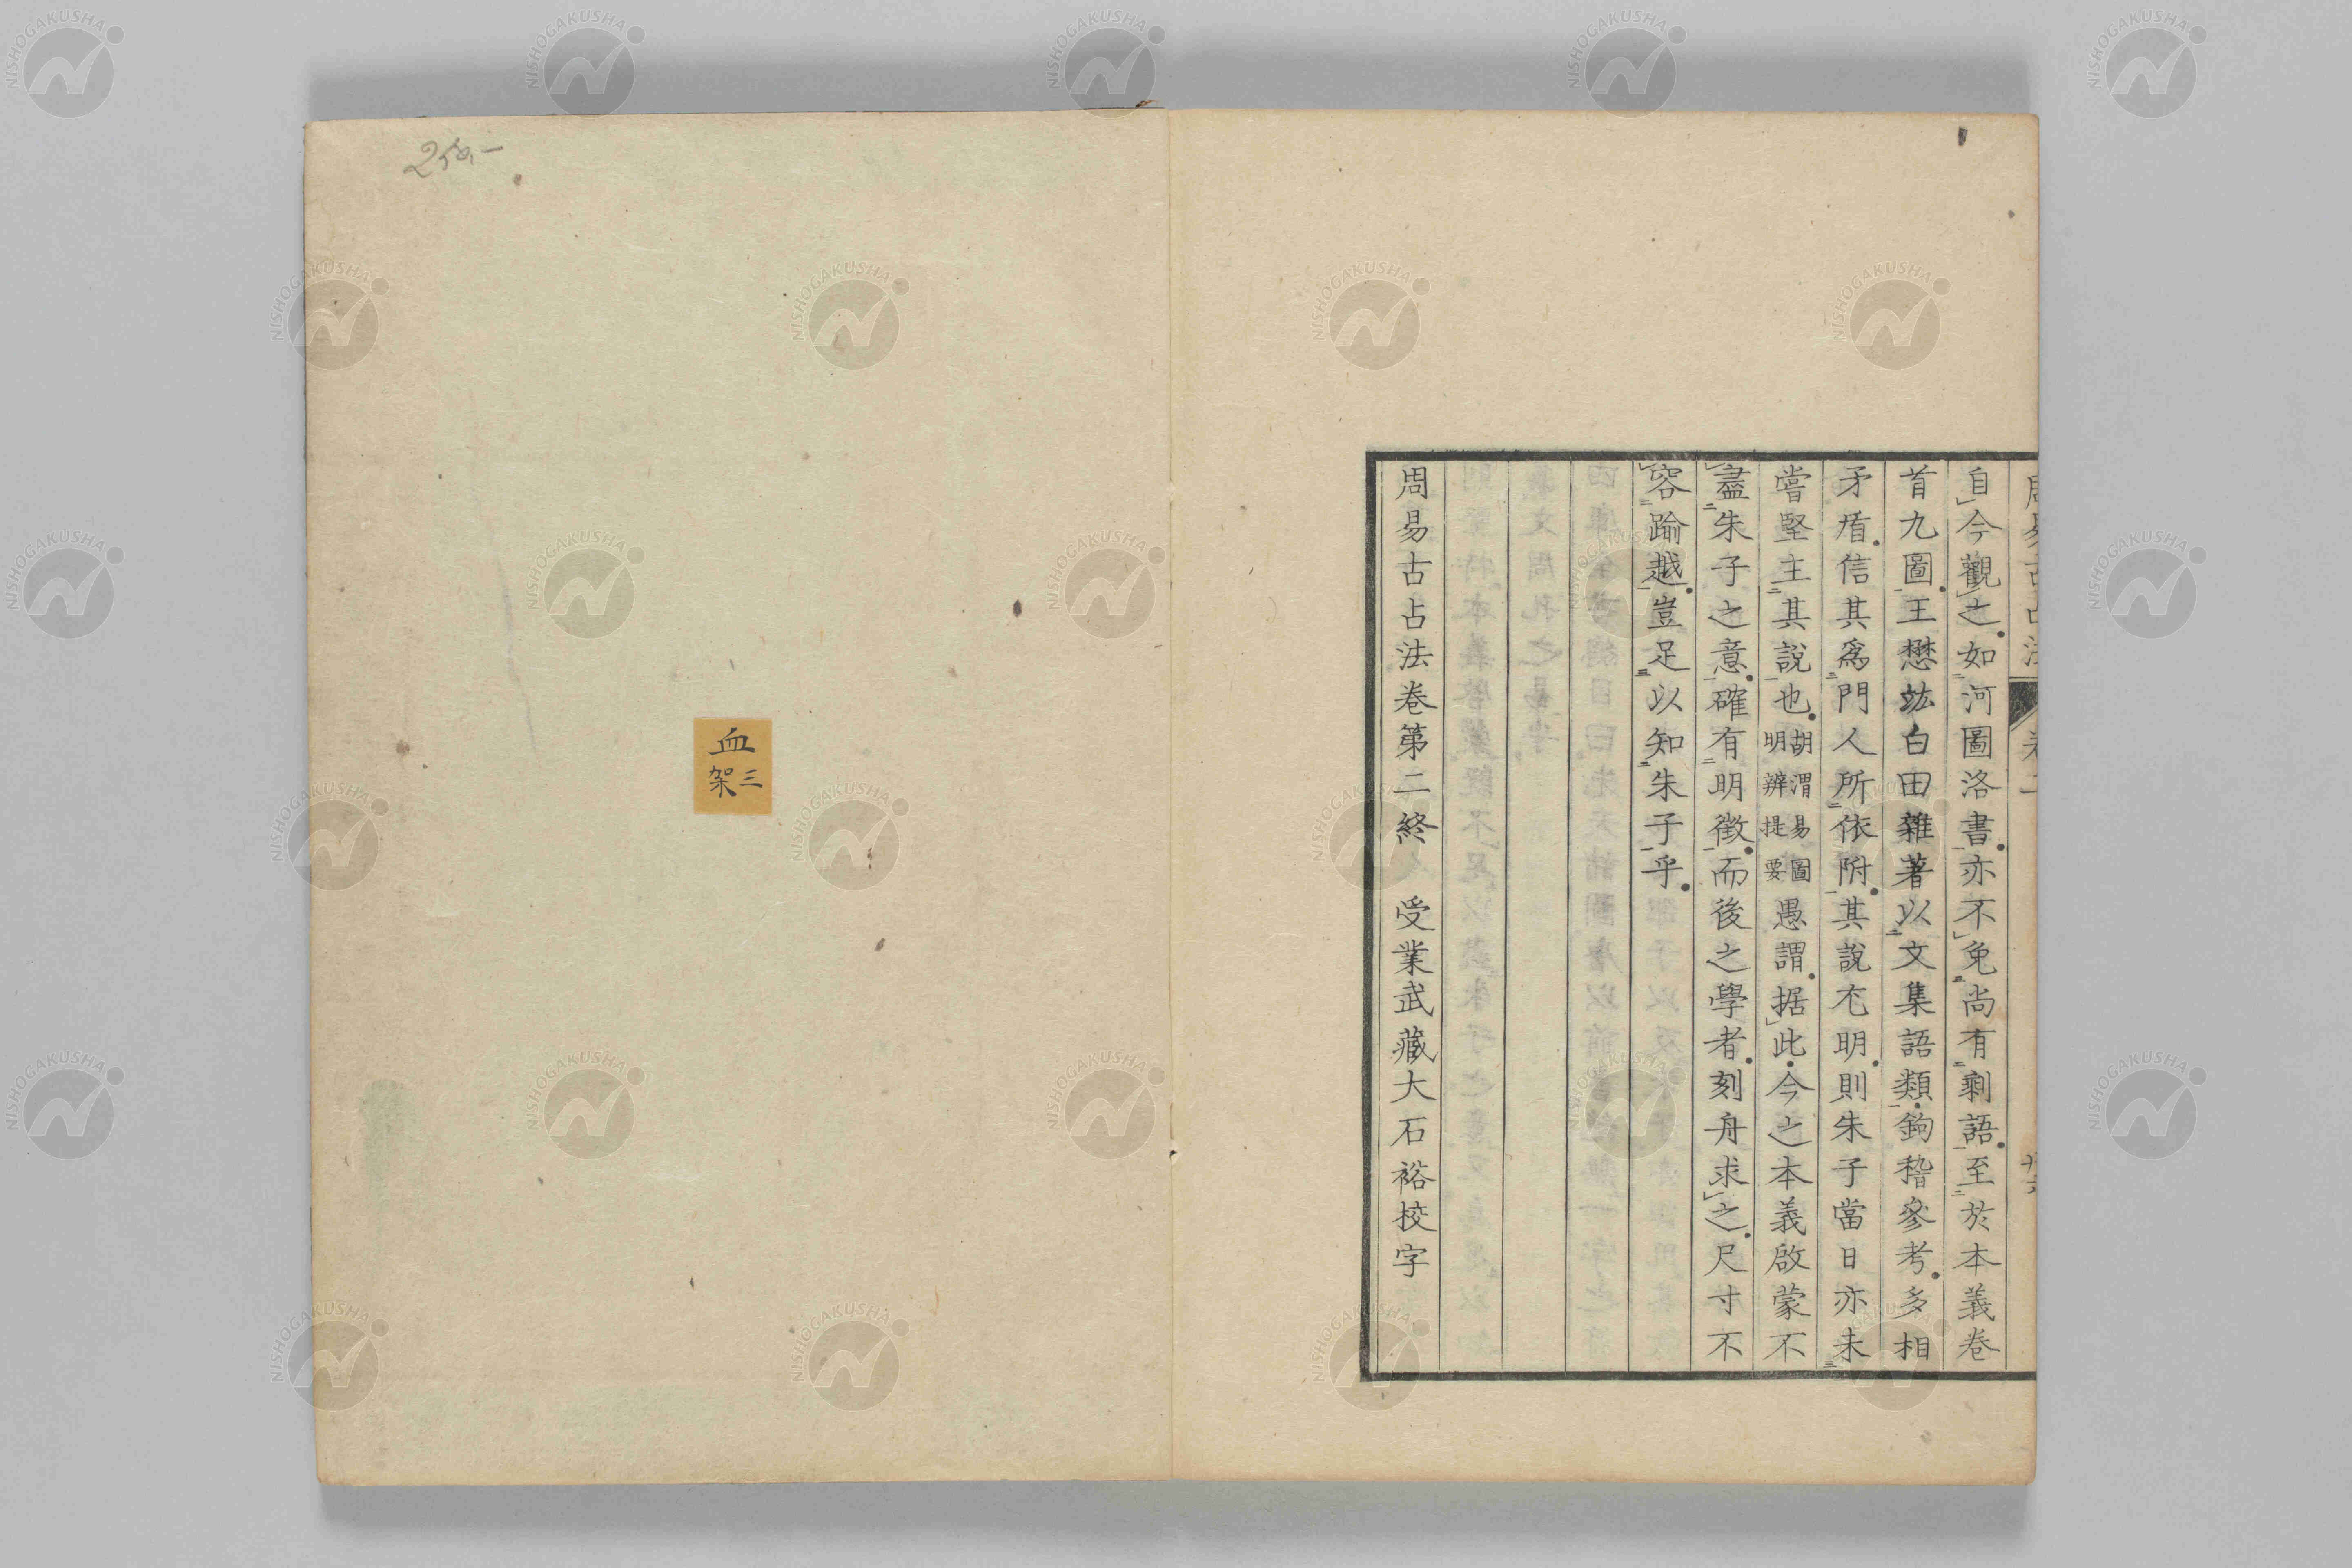 自今觀之如河圖洛書亦不免尚有剩語至於本義卷
首九圖王懋竑白田雜著以文集語類鉤稽參考多相
矛盾信其爲門人所依附其說冘明則朱子當日亦未
嘗堅主其說也胡渭易圖明辨提要愚謂据此今之本義啟蒙不
盡朱子之意確有明徵而後之學者刻舟求之尺寸不
容踰越豈足以知朱子乎
周易古占法卷第二終 受業武藏大石裕校字
血
三架
NISHOGAKUSHA